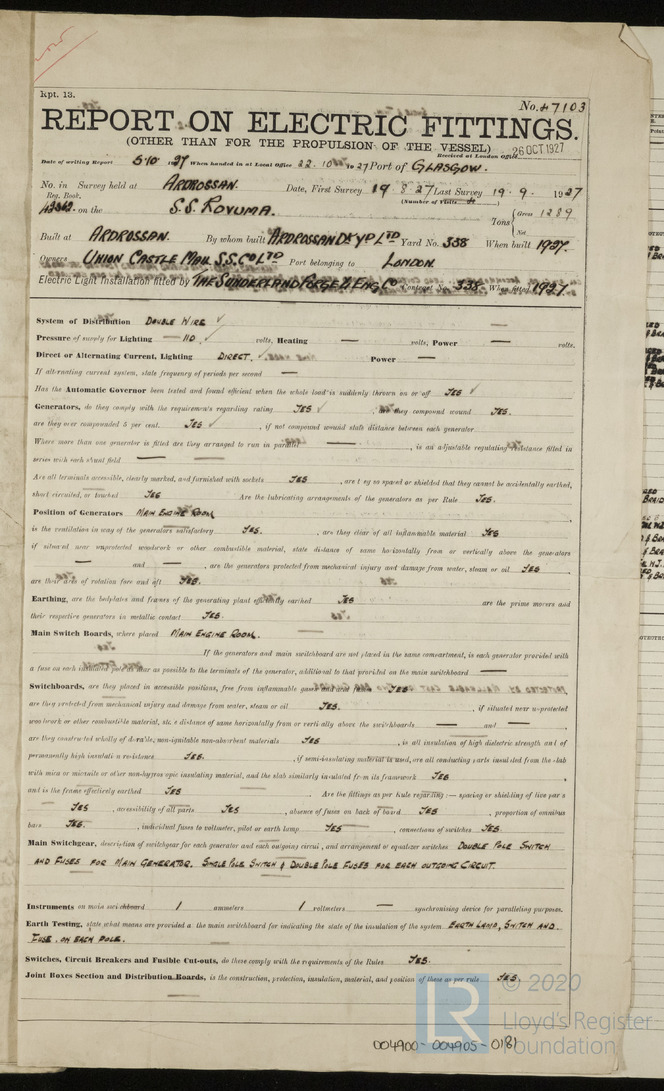 Rpt. 13.
No. 47103
REPORT ON ELECTRIC FITTINGS.
(OTHER THAN FOR THE PROPULSION OF THE VESSEL)
Received at London Office 26 OCT 1927
Date of writing Report 5.10.27 When handed in at Local Office 22.10.1927 Port of GLASGOW.
No. in Survey held at ARDROSSAN. Date, First Survey 19 8 27 Last Survey 19.9.1927
Reg. Book. (Number of Visits 4)
on the S.S. ROVUMA. Tons { Gross 1289
Net
Built at ARDROSSAN. By whom built ARDROSSAN DKYD LTD Yard No. 338 When built 1927.
Owners UNION CASTLE MAIL S.S. CO LTD Port belonging to LONDON.
Electric Light Installation fitted by THE SUNDERLAND FORGE & ENG CO Contract No. 338 When fitted 1927.
System of Distribution DOUBLE WIRE ✓
Pressure of supply for Lighting 110 ✓ volts, Heating — volts, Power — volts.
Direct or Alternating Current, Lighting DIRECT. ✓ Power —
If alternating current system, state frequency of periods per second —
Has the Automatic Governor been tested and found efficient when the whole load is suddenly thrown on or off YES ✓
Generators, do they comply with the requirements regarding rating YES ✓, are they compound wound YES.
are they over compounded 5 per cent. YES ✓, if not compound wound state distance between each generator
Where more than one generator is fitted are they arranged to run in parallel —, is an adjustable regulating resistance fitted in
series with each shunt field —
Are all terminals accessible, clearly marked, and furnished with sockets YES, are they so spaced or shielded that they cannot be accidentally earthed,
short circuited, or touched YES Are the lubricating arrangements of the generators as per Rule YES.
Position of Generators MAIN ENGINE ROOM
is the ventilation in way of the generators satisfactory YES., are they clear of all inflammable material YES
if situated near unprotected woodwork or other combustible material, state distance of same horizontally from or vertically above the generators
— and —, are the generators protected from mechanical injury and damage from water, steam or oil YES,
are their axes of rotation fore and aft YES.
Earthing, are the bedplates and frames of the generating plant efficiently earthed YES are the prime movers and
their respective generators in metallic contact YES.
Main Switch Boards, where placed MAIN ENGINE ROOM.
If the generators and main switchboard are not placed in the same compartment, is each generator provided with
a fuse on each insulated pole as near as possible to the terminals of the generator, additional to that provided on the main switchboard —
Switchboards, are they placed in accessible positions, free from inflammable gases and acid fumes YES
are they protected from mechanical injury and damage from water, steam or oil YES., if situated near unprotected
woodwork or other combustible material, state distance of same horizontally from or vertically above the switchboards — and —
are they constructed wholly of durable, non-ignitable non-absorbent materials YES, is all insulation of high dielectric strength and of
permanently high insulation resistance YES., if semi-insulating material is used, are all conducting parts insulated from the slab
with mica or micanite or other non-hygroscopic insulating material, and the slab similarly insulated from its framework YES
and is the frame effectively earthed YES Are the fittings as per Rule regarding :— spacing or shielding of live parts
YES, accessibility of all parts YES, absence of fuses on back of board YES, proportion of omnibus
bars YES., individual fuses to voltmeter, pilot or earth lamp YES, connections of switches YES.
Main Switchgear, description of switchgear for each generator and each outgoing circuit, and arrangement of equalizer switches DOUBLE POLE SWITCH
AND FUSES FOR MAIN GENERATOR. SINGLE POLE SWITCH & DOUBLE POLE FUSES FOR EACH OUTGOING CIRCUIT.
Instruments on main switchboard 1 ammeters 1 voltmeters — synchronising device for paralleling purposes.
Earth Testing, state what means are provided at the main switchboard for indicating the state of the insulation of the system EARTH LAMP, SWITCH AND
FUSE, ON EACH POLE.
Switches, Circuit Breakers and Fusible Cut-outs, do these comply with the requirements of the Rules YES.
Joint Boxes Section and Distribution Boards, is the construction, protection, insulation, material, and position of these as per rule YES.
LR © 2020
Lloyd's Register
Foundation
004900-004905-0181